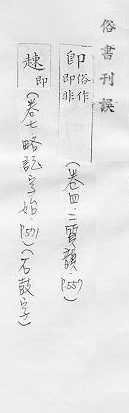 俗書刊誤
卽 俗作即非
(卷四.二質韻.P.557)
𧼈 即
(卷七略記字始.P.571)(石鼓字)